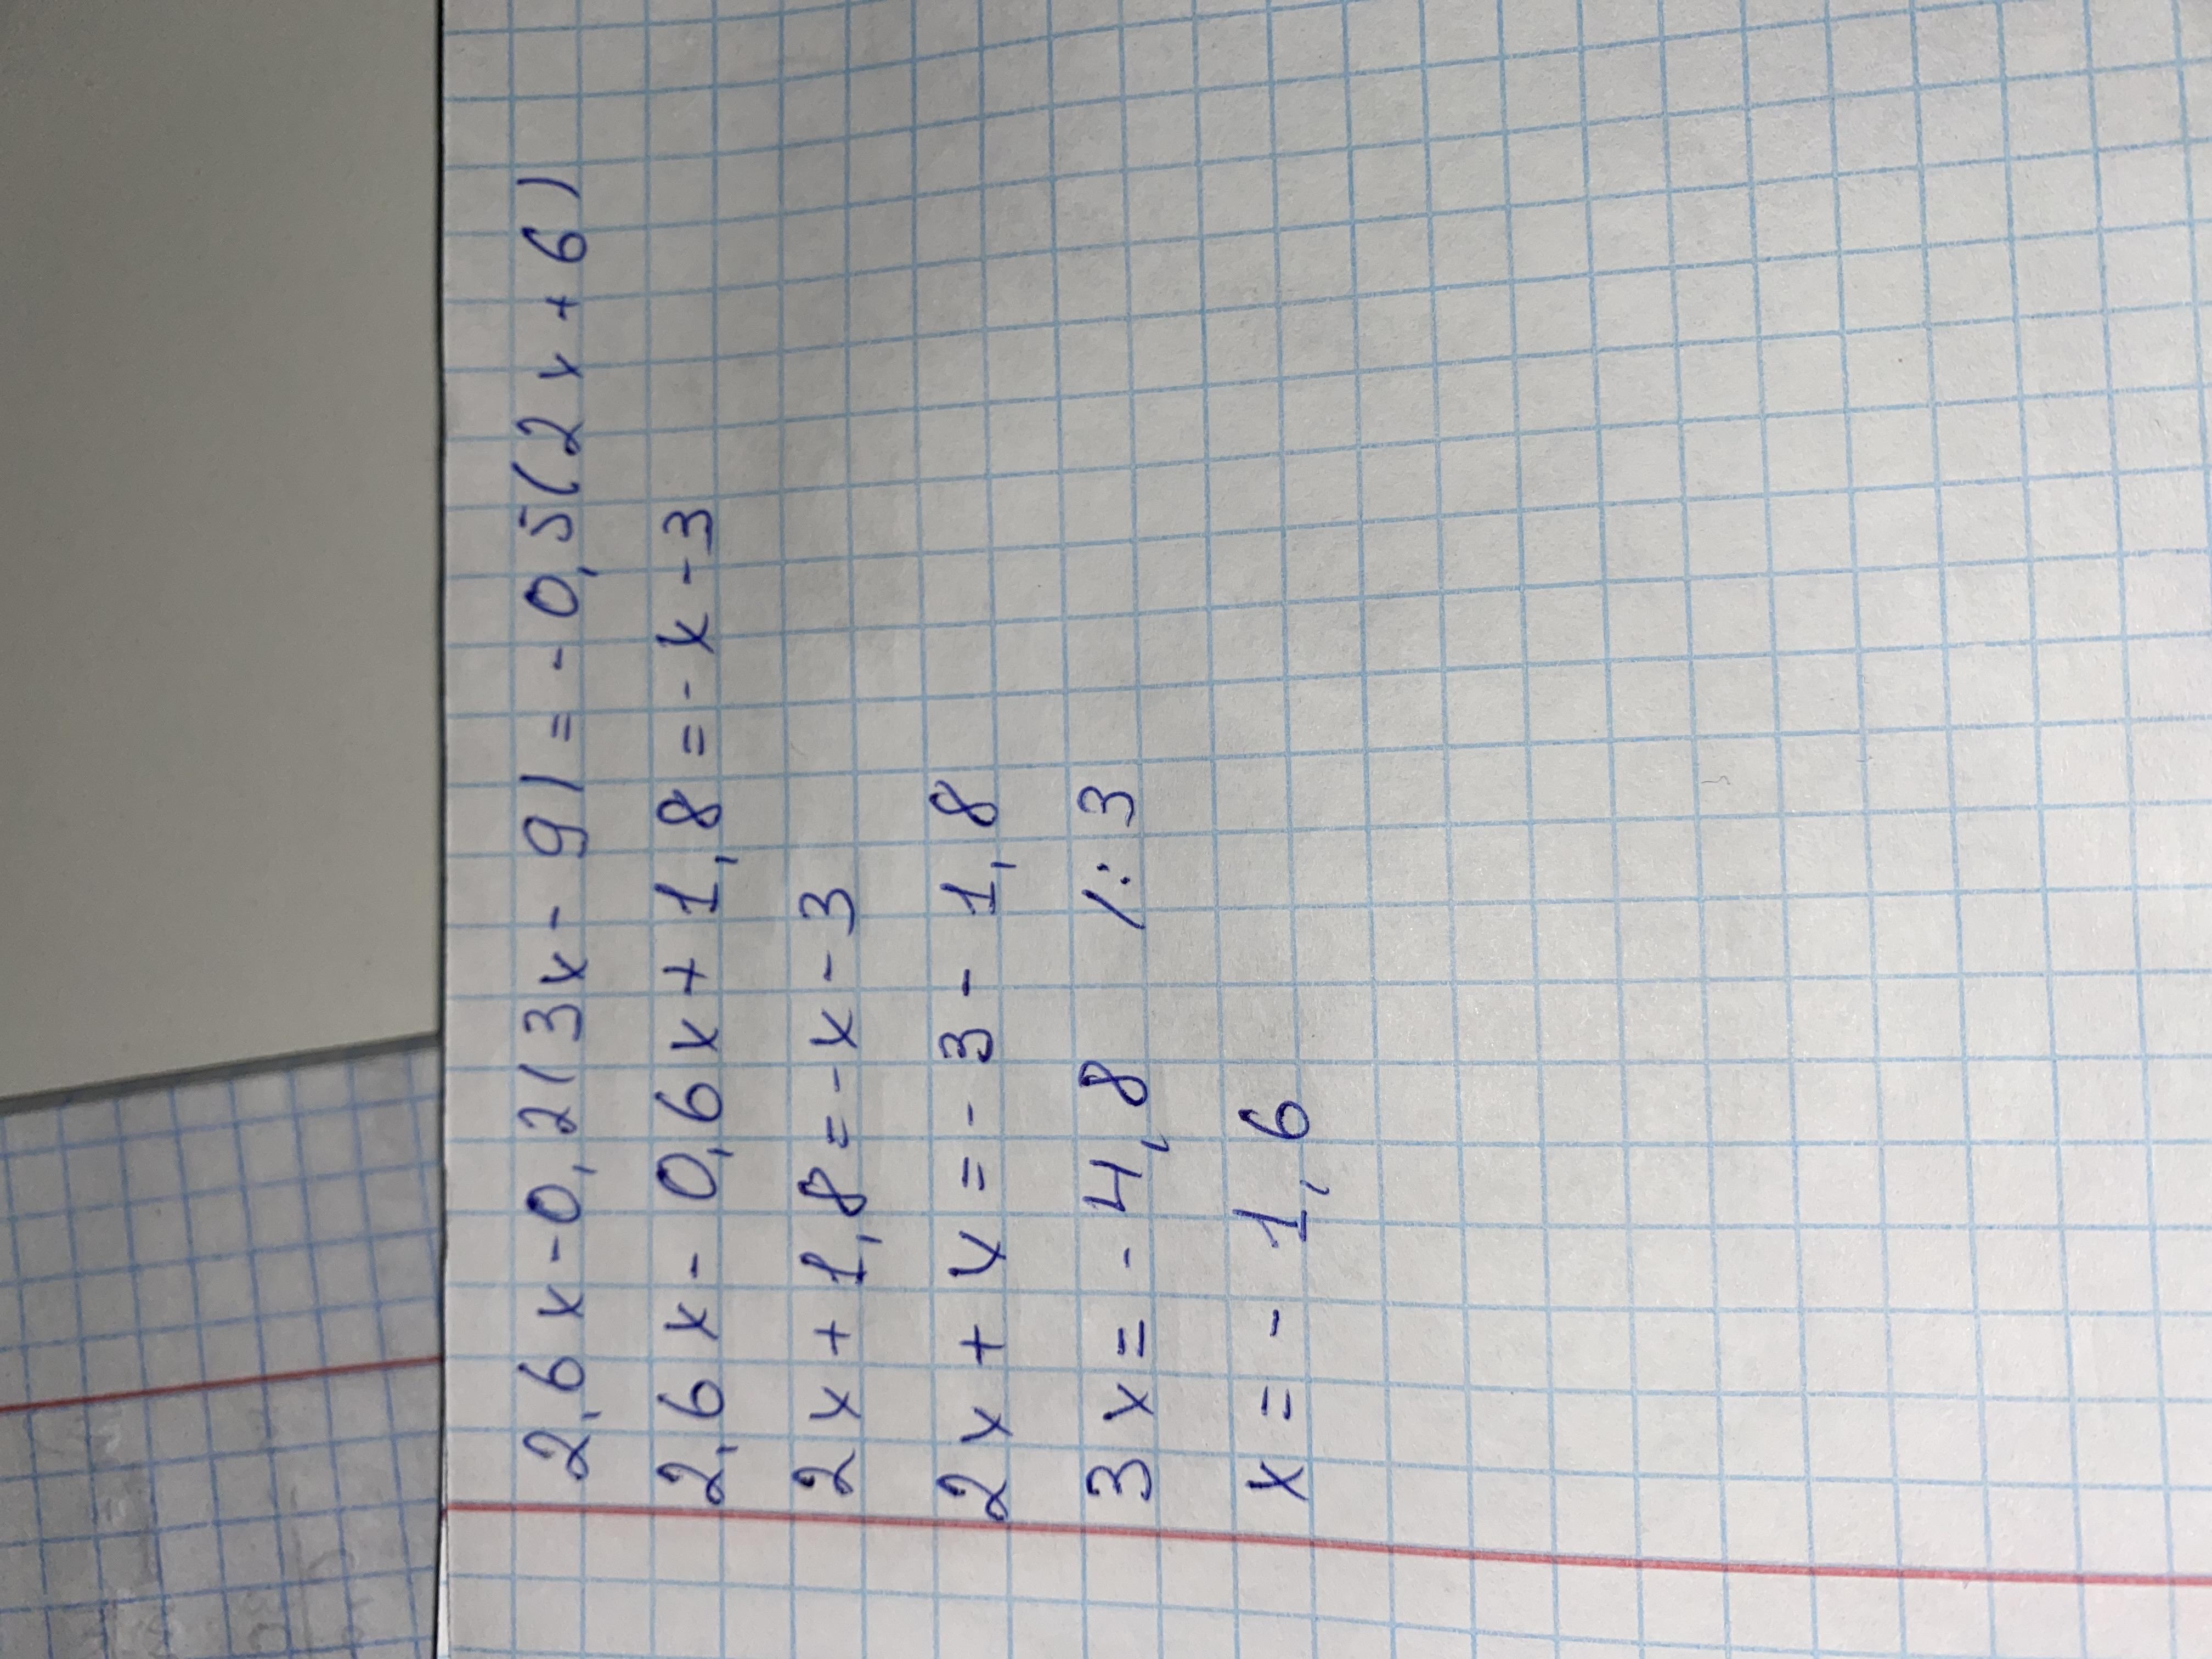 2,6x-0,2(3x-9)=-0,5(2x+6)
2,6x-0,6x+1,8=-x-3
2x+1,8=-x-3
2x+x=-3-1,8
3x=-4,8 /:3
x=-1,6